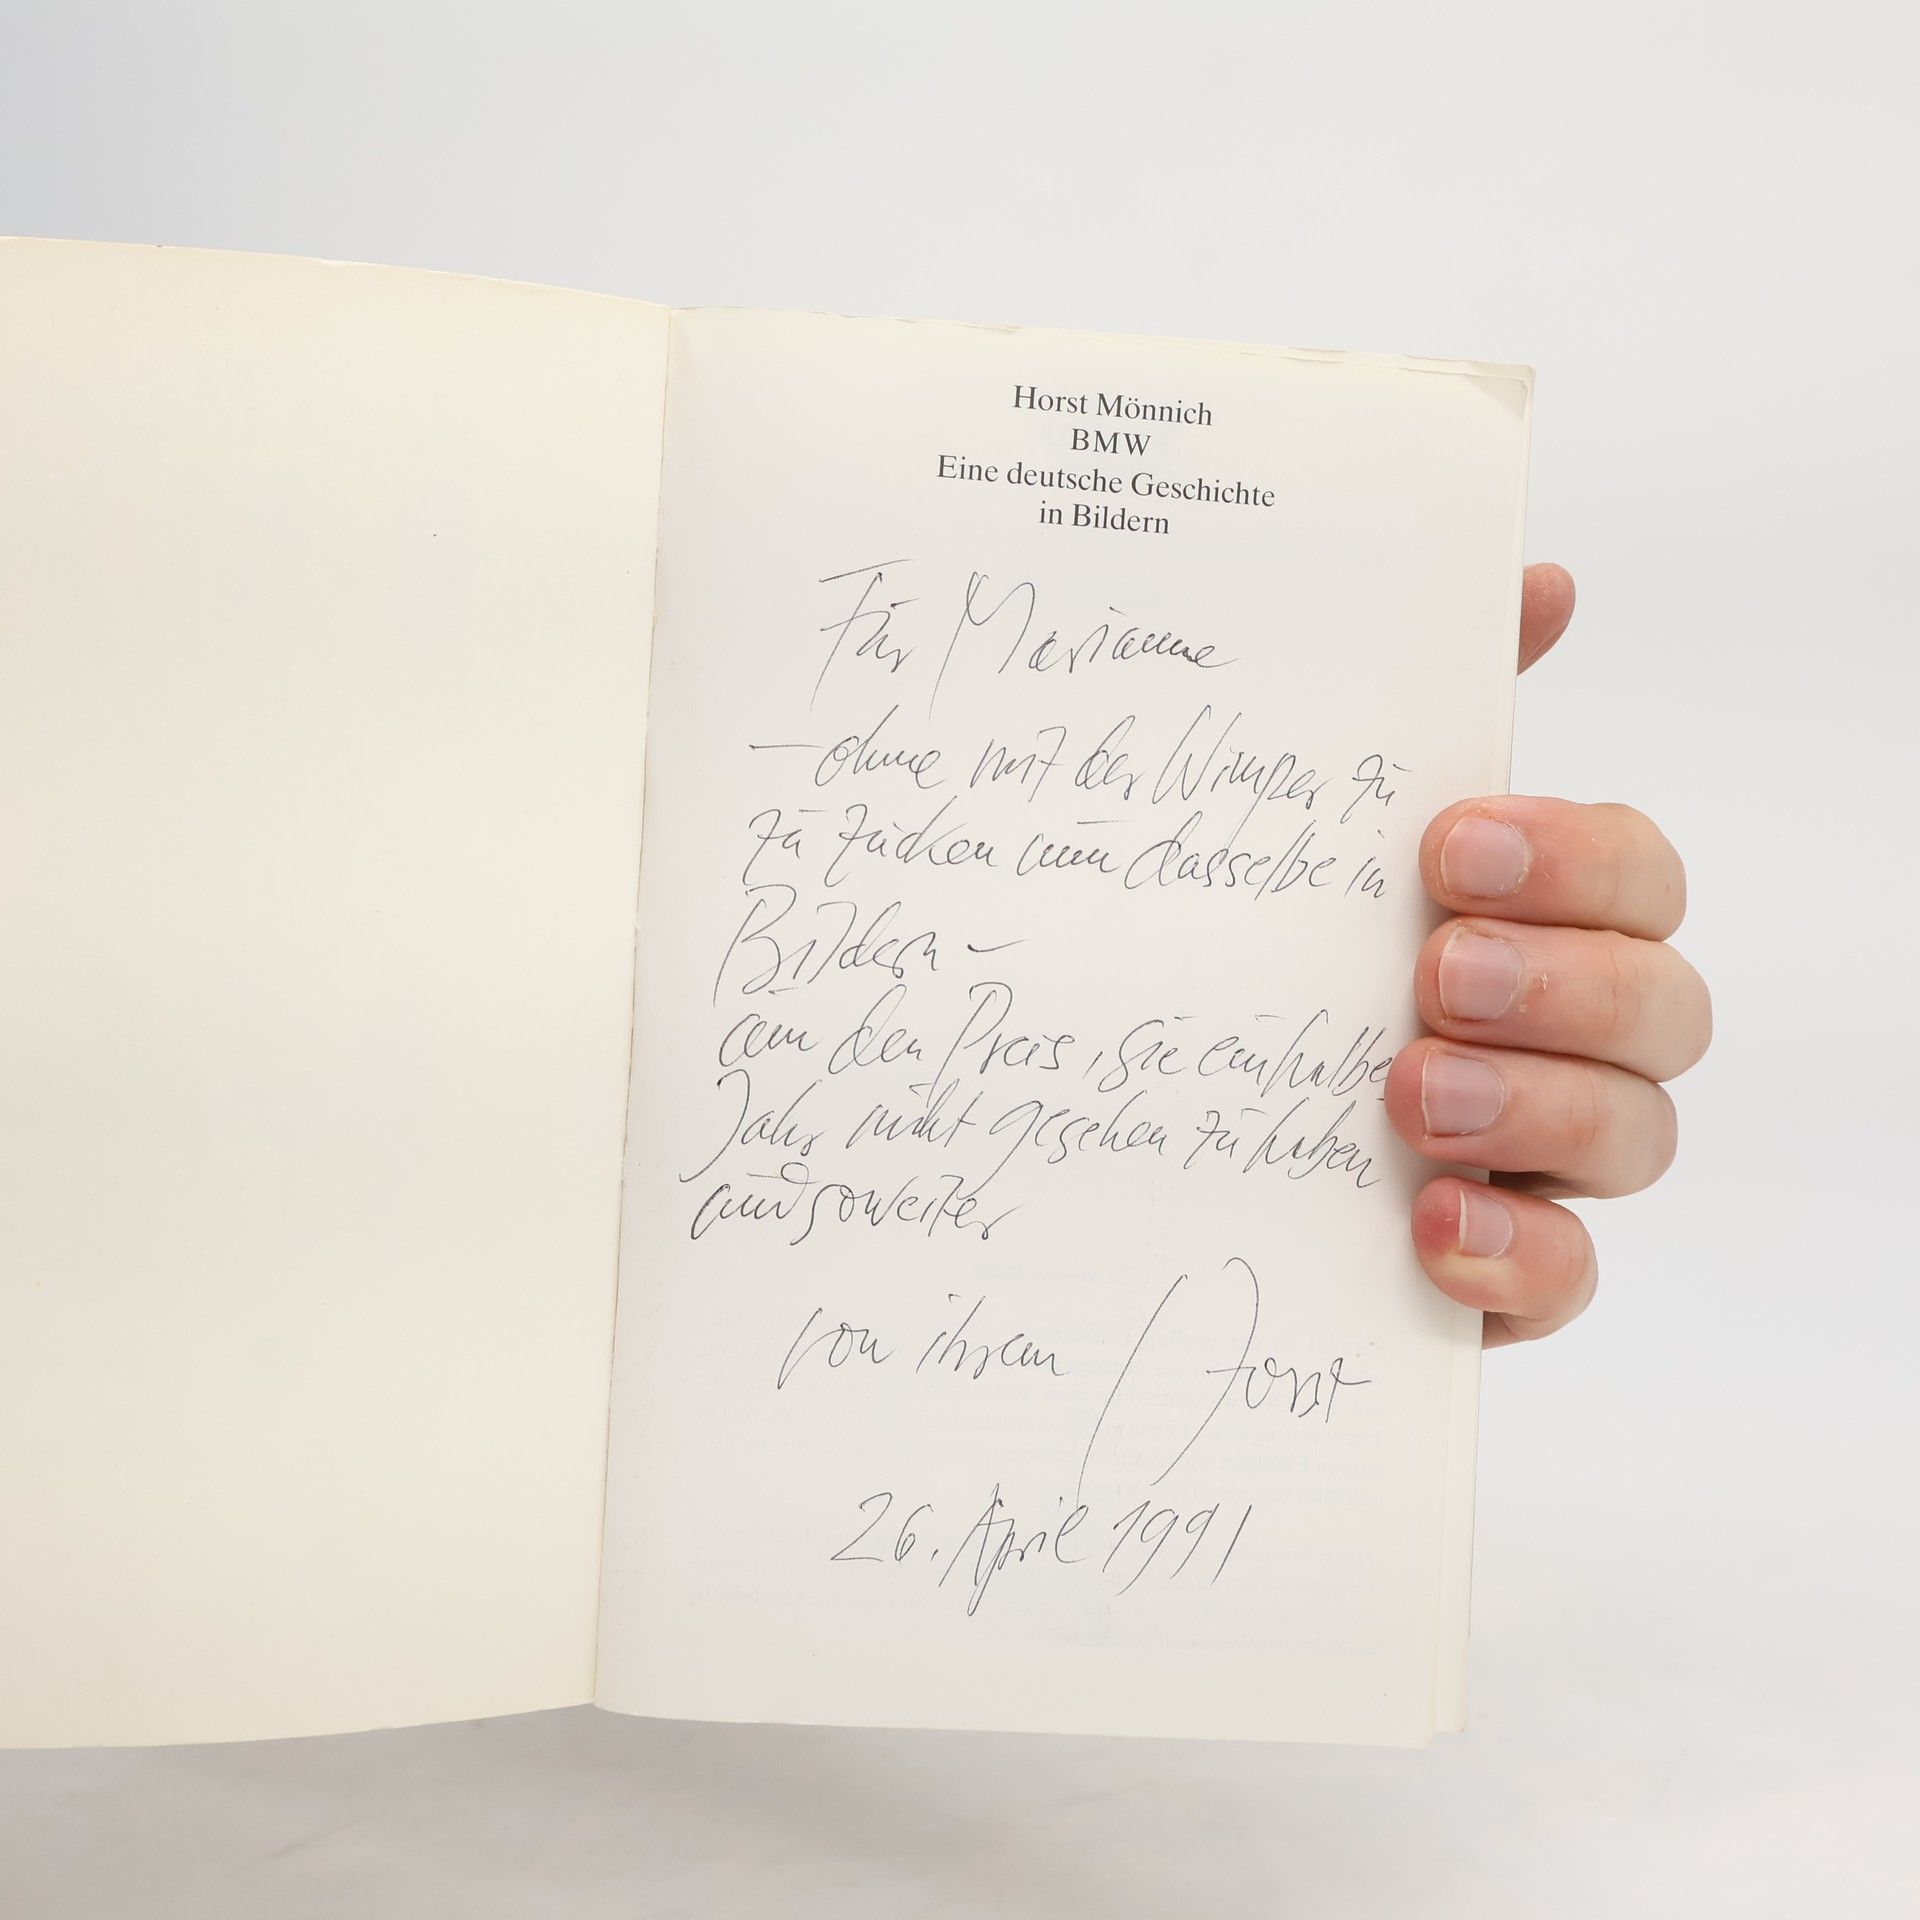 Horst Mönnich
BMW
Eine deutsche Geschichte
in Bildern
Für Marianne
— ohne mit der Wimper zu
zu zucken nun dasselbe in
Bildern —
um den Preis, sie ein halbes
Jahr nicht gesehen zu haben
undsoweiter
von ihrem Horst
26. April 1991